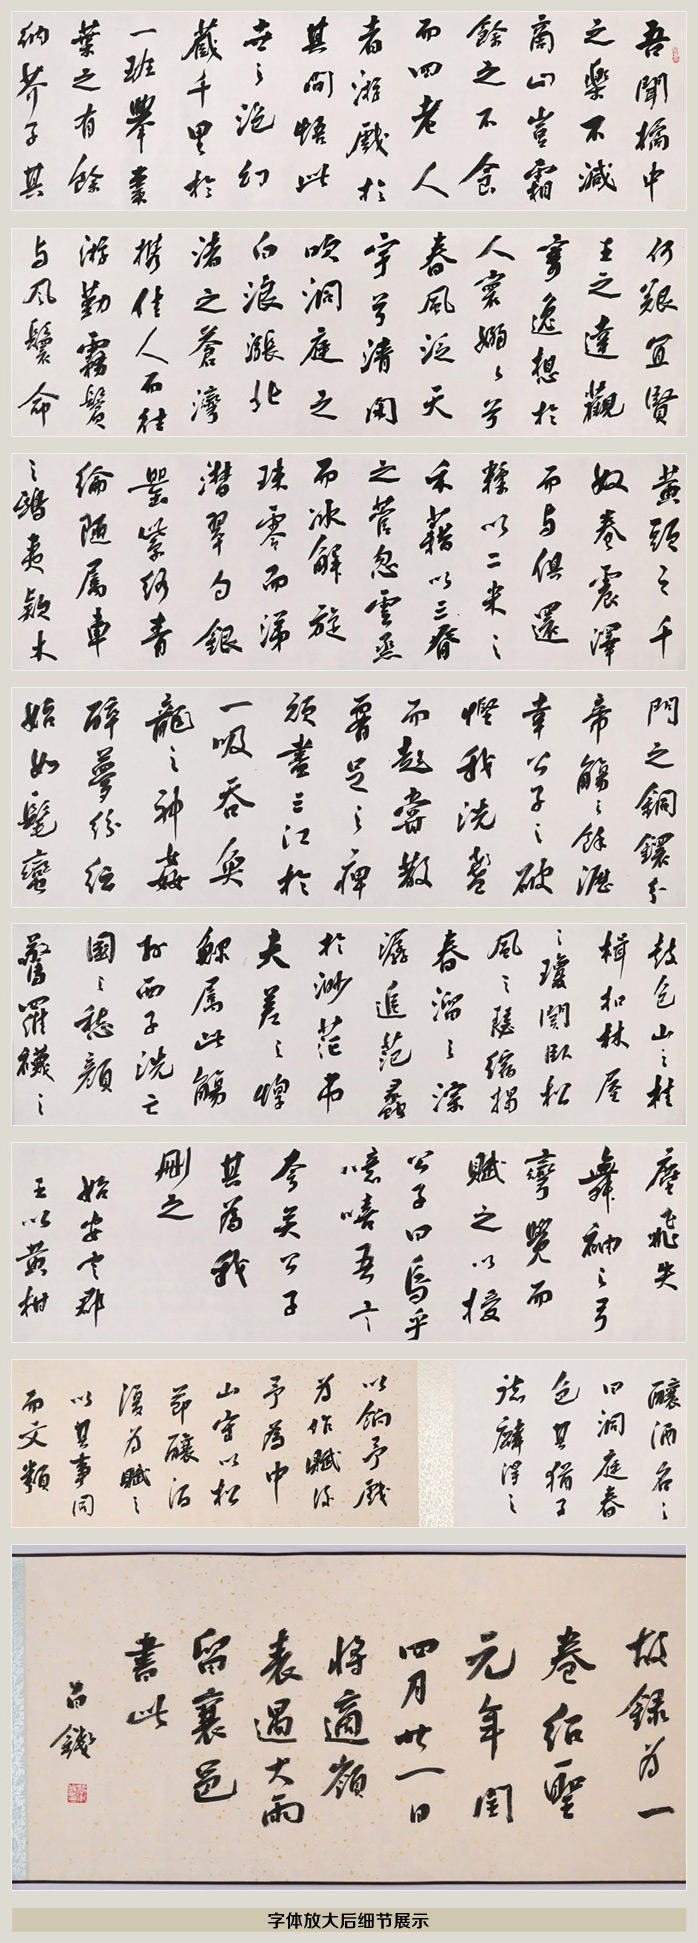 吾聞橘中
之樂不減
商山豈霜
餘之不食
而四老人
者游戲於
其間悟此
世之泡幻
藏千里於
一班舉棗
葉之有餘
納芥子其
何艱宜賢
王之達觀
寄逸想於
人寰嫋々兮
春風泛天
宇兮清閑
吹洞庭之
白浪漲北
渚之蒼灣
携佳人而往
游勤霧鬢
与風鬟命
黄頭之千
奴卷震澤
而与俱還
糅以二米之
禾藉以三脊
之菅忽雲烝
而冰解旋
珠零而涕
潸翠勺銀
罌紫絡青
綸隨属車
之鴟夷款木
門之銅鐶分
帝觴之餘瀝
幸公子之破
慳我洗盞
而起嘗散
腰足之痺
頑盡三江於
一吸吞魚
龍之神姦
醉夢紛紜
始如髦蠻
鼓包山之桂
楫扣林屋
之瓊關卧松
風之瑟縮揭
春溜之淙
潺追范蠡
於渺茫吊
夫差之惸
鰥属此觴
於西子洗亡
國之愁顏
驚羅襪之
塵飛失
舞袖之弓
彎覺而
賦之以授
公子曰烏乎
噫嘻吾言
夸矣公子
其為我
刪之
始安定郡
王以黄柑
釀酒名之
曰洞庭春
色其猶子
德麟得之
以餉予戲
為作賦後
予為中
山守以松
節釀酒
復為賦之
以其事同
而文類
故録為一
卷紹聖
元年閏
四月廿一日
將適嶺
表遇大雨
留襄邑
書此
字体放大后细节展示